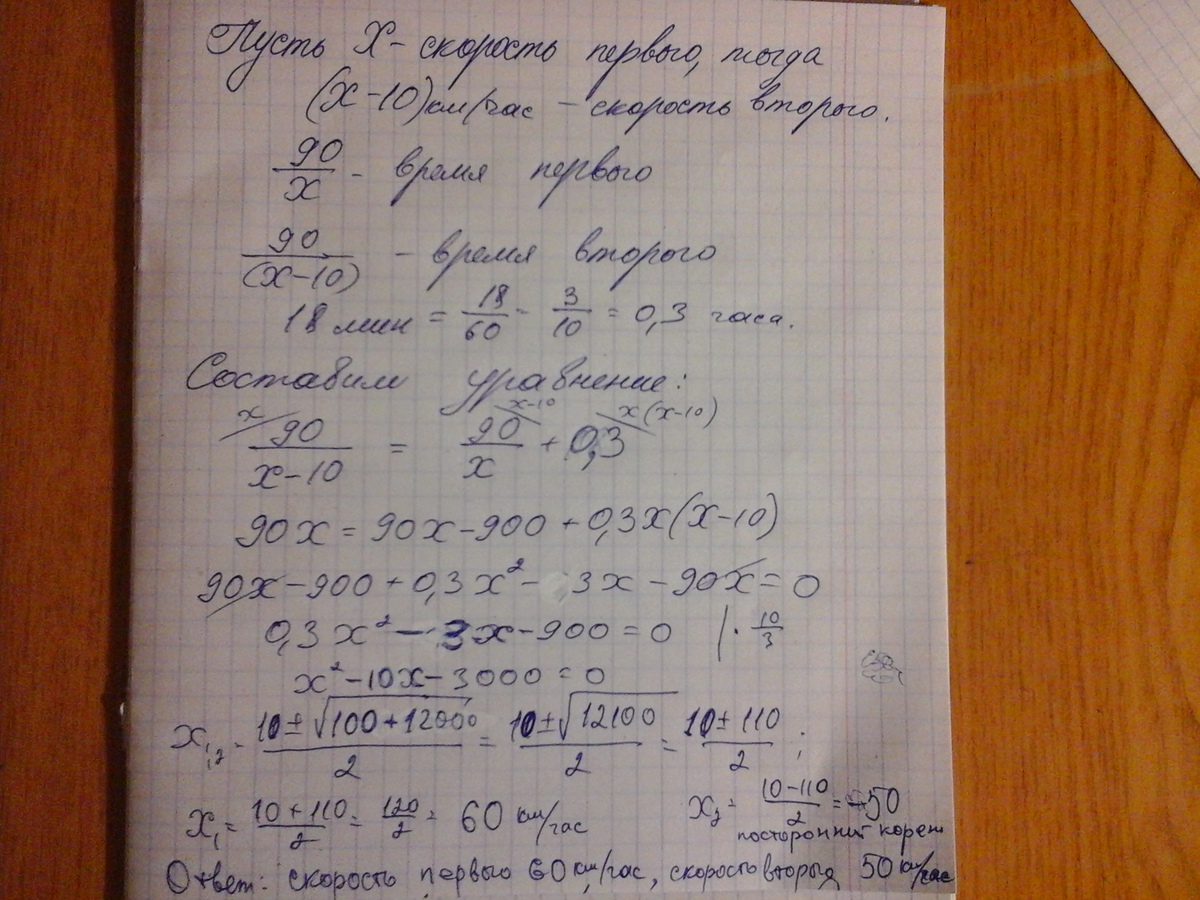 Пусть X - скорость первого, тогда
(x-10) км/час - скорость второго.
90/x - время первого
90/(x-10) - время второго
18 мин = 18/60 - 3/10 = 0,3 часа.
Составим уравнение:
x x-10 x(x-10)
90/x-10 = 90/x + 0,3
90x = 90x-900 + 0,3x(x-10)
90x-900 + 0,3x² - 3x - 90x = 0
0,3x² - 3x - 900 = 0 | · 10/3
x² - 10x - 3000 = 0
x1,2 = 10 ± √100+12000/2 = 10 ± √12100/2 = 10 ± 110/2 ;
x1 = 10+110/2 = 120/2 = 60 км/час x2 = 10-110/2 = -50
посторонний корень
Ответ: скорость первого 60 км/час, скорость вторыя 50 км/час